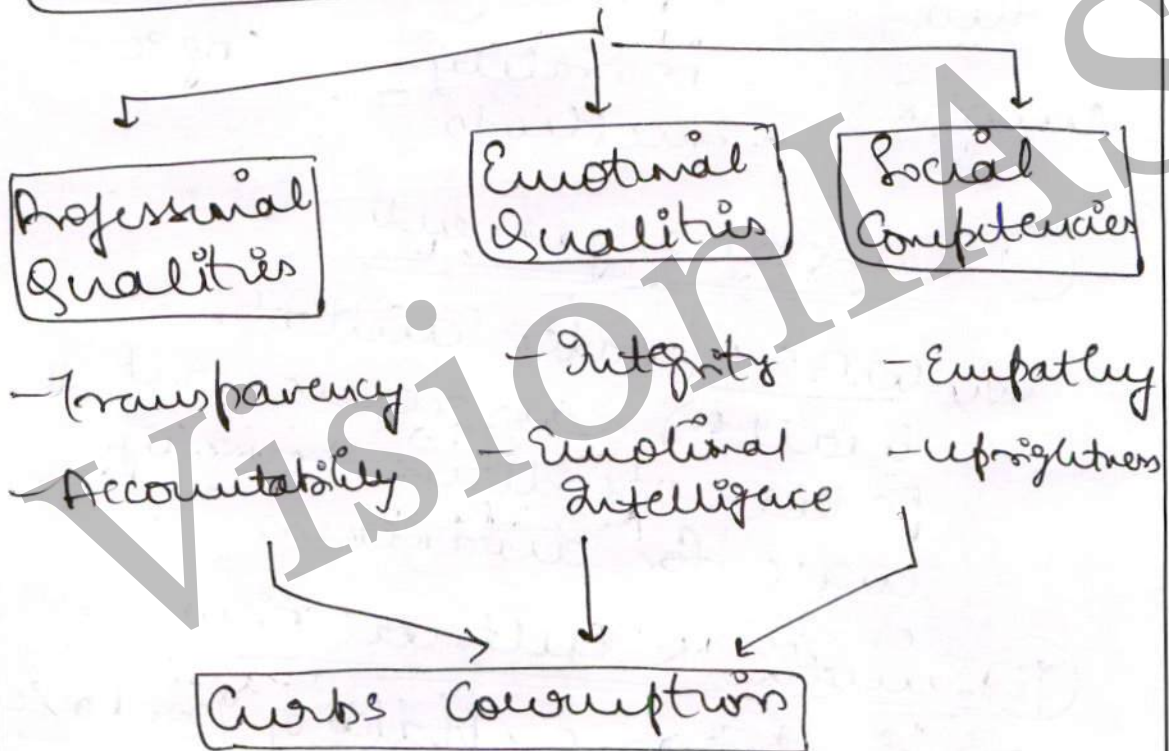 Professional
Qualities
Emotional
Qualities
Social
Competencies
- Transparency
- Accountability
- Integrity
- Emotional
Intelligence
- Empathy
- Uprightness
Curbs Corruption
VisionIAS